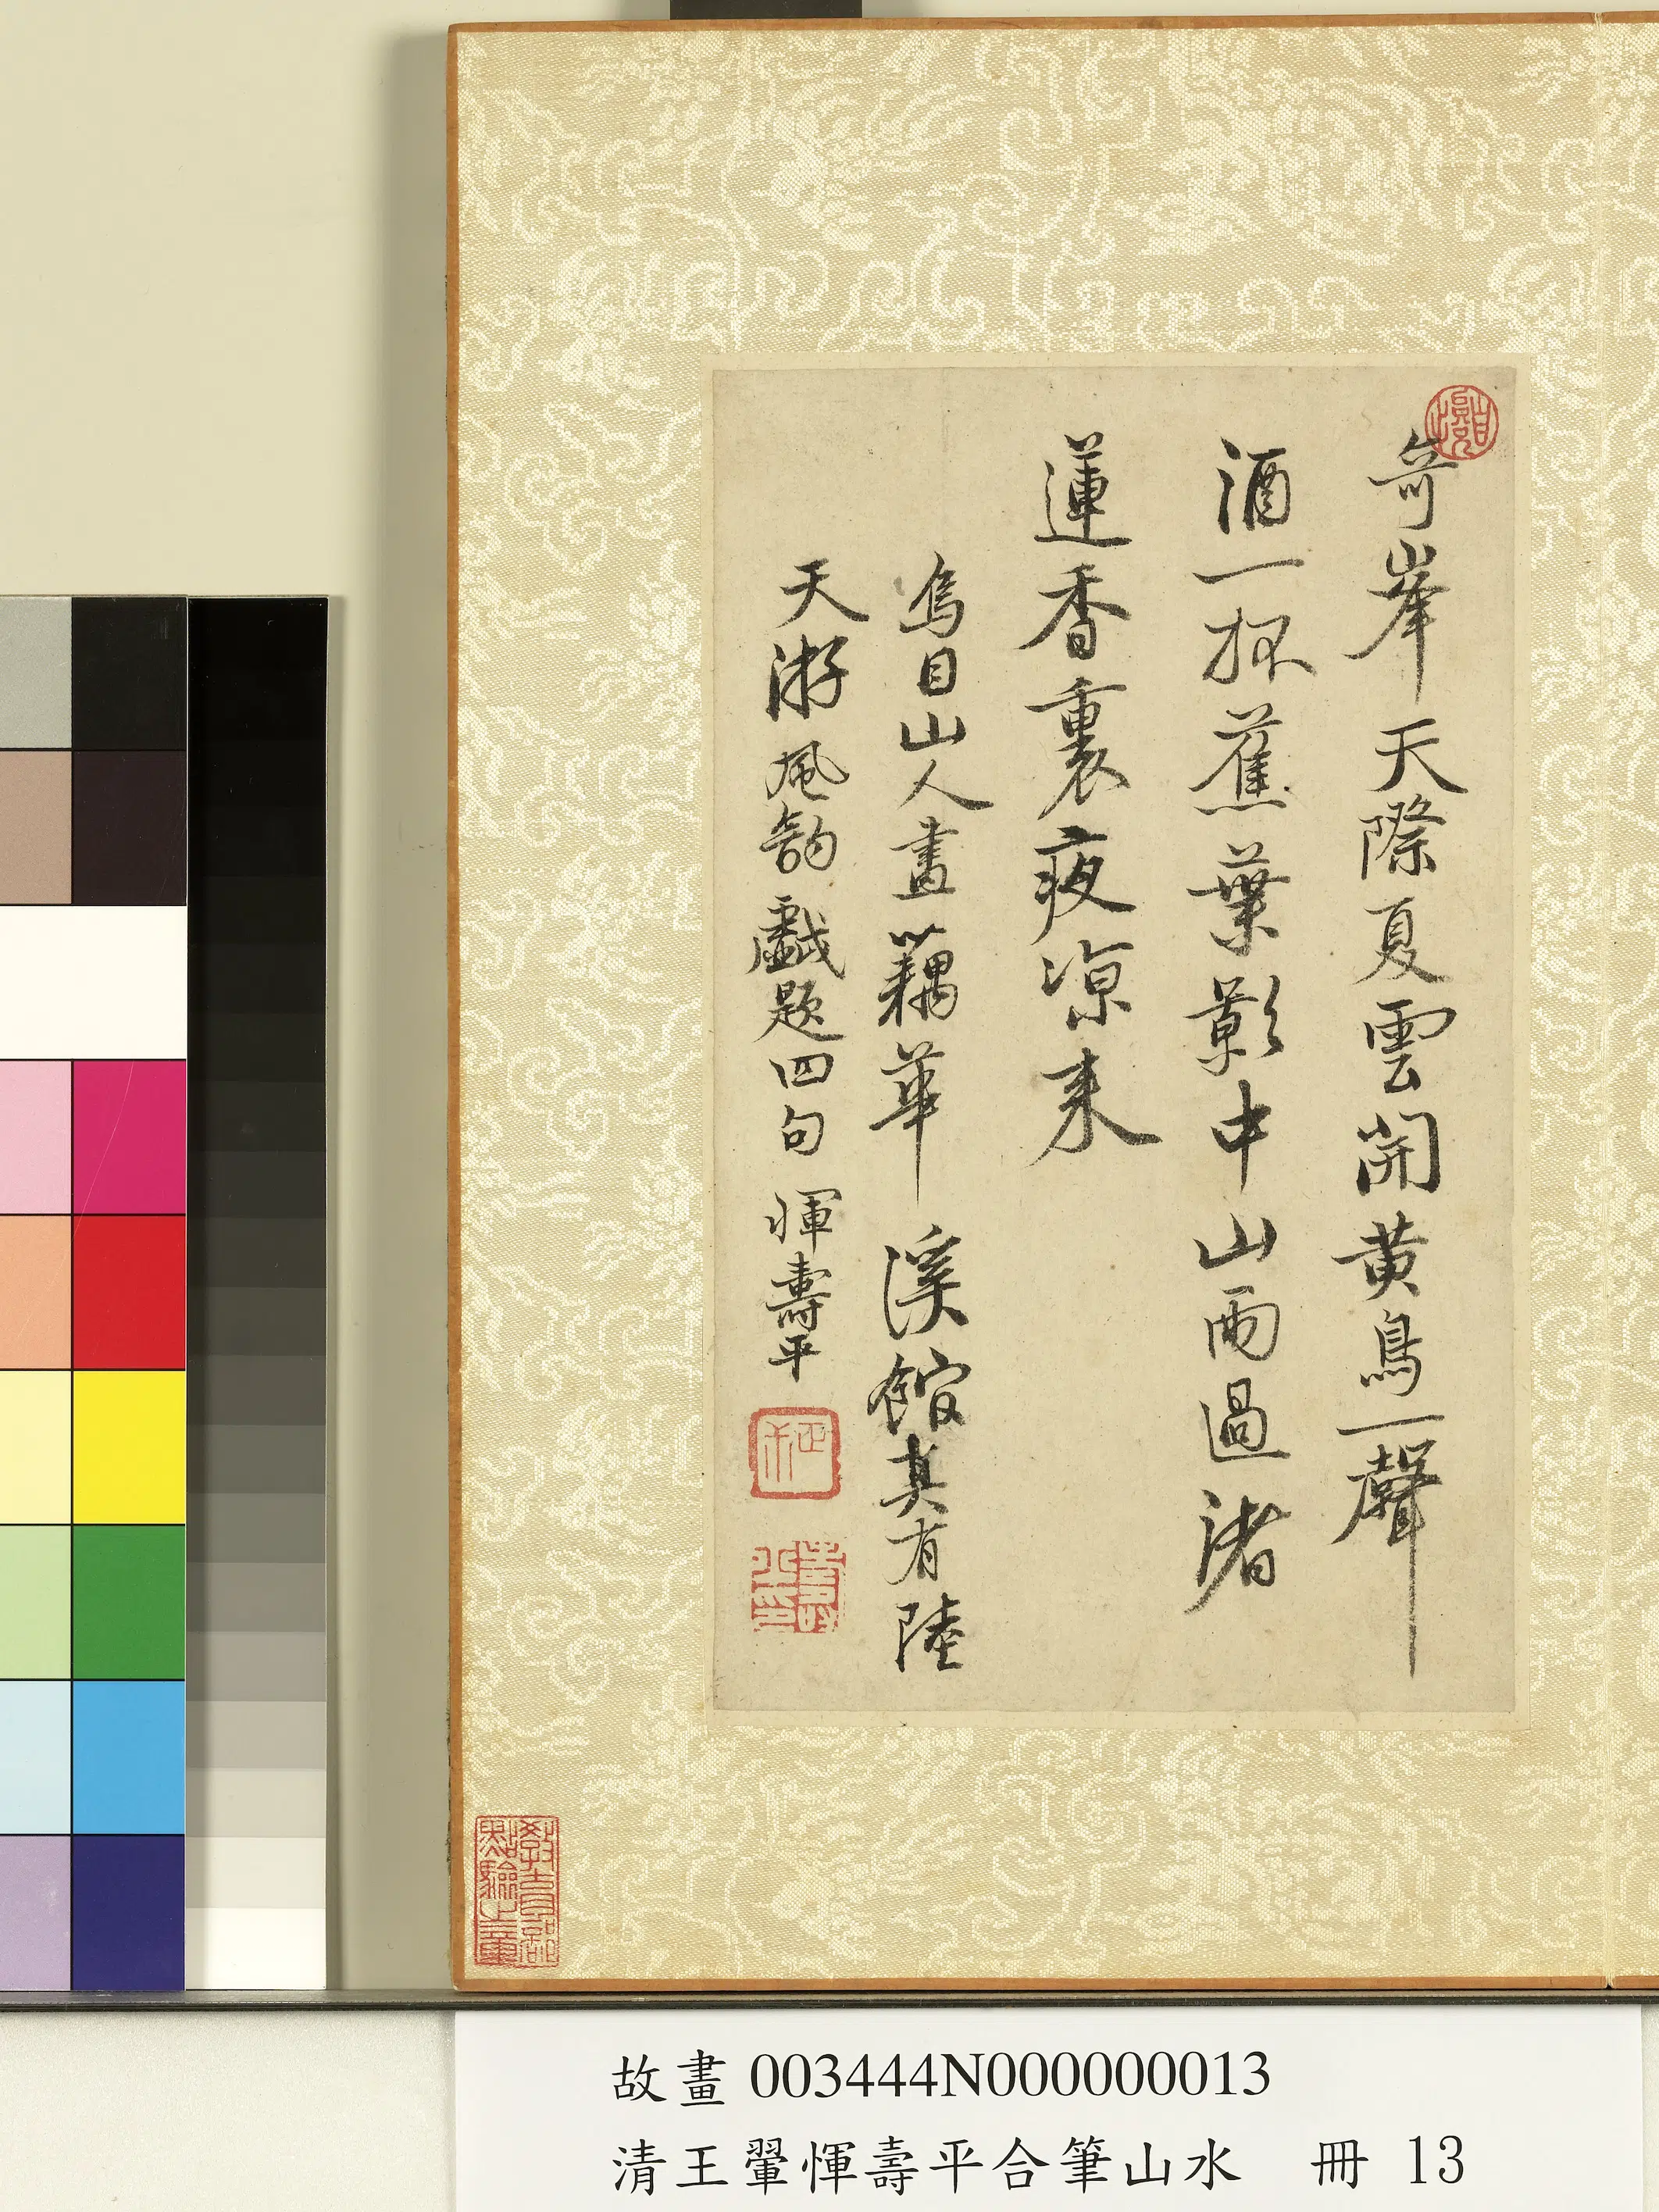 奇峯天際夏雲開黃鳥一聲
酒一杯蕉葉影中山雨過渚
蓮香裏夜涼来
烏目山人畫藕華溪館真有陸
天游風韵戲題四句 惲壽平
壽平印
教育部
點驗之章
故畫 003444N000000013
清王翬惲壽平合筆山水 冊 13